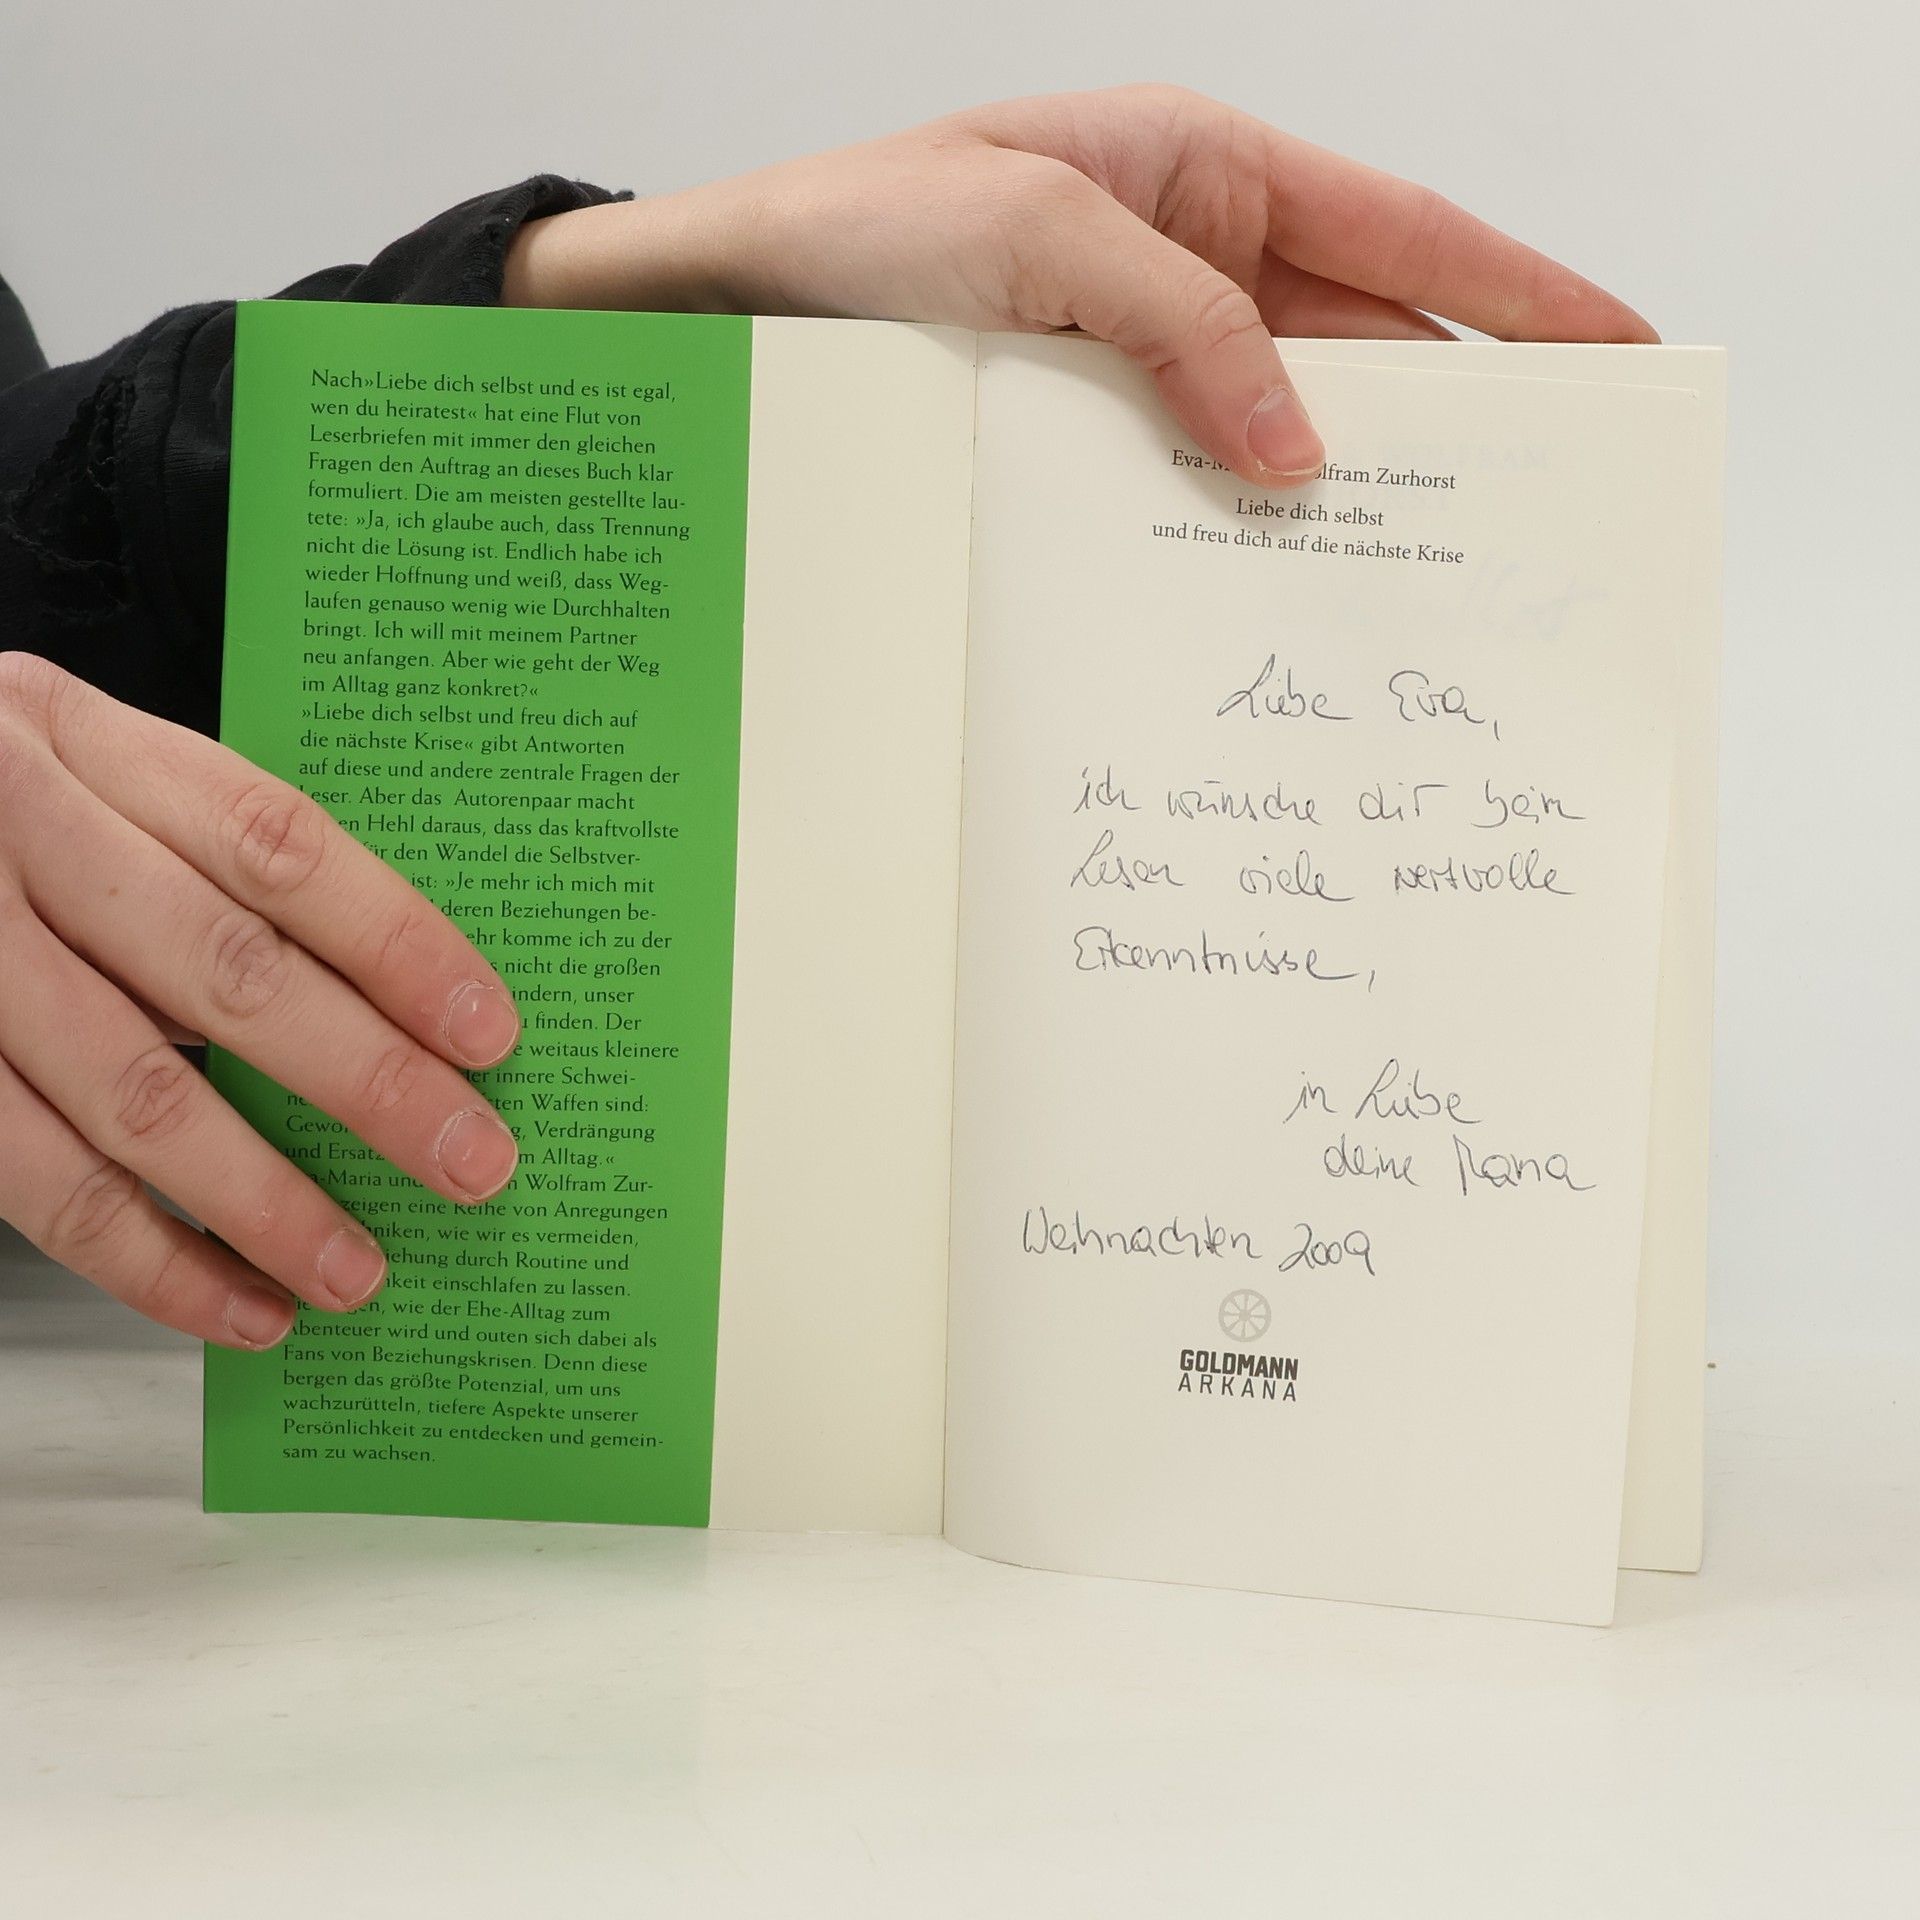 Nach»Liebe dich selbst und es ist egal,
wen du heiratest« hat eine Flut von
Leserbriefen mit immer den gleichen
Fragen den Auftrag an dieses Buch klar
formuliert. Die am meisten gestellte lau-
tete: »Ja, ich glaube auch, dass Trennung
nicht die Lösung ist. Endlich habe ich
wieder Hoffnung und weiß, dass Weg-
laufen genauso wenig wie Durchhalten
bringt. Ich will mit meinem Partner
neu anfangen. Aber wie geht der Weg
im Alltag ganz konkret?«
»Liebe dich selbst und freu dich auf
die nächste Krise« gibt Antworten
auf diese und andere zentrale Fragen der
Leser. Aber das Autorenpaar macht
en Hehl daraus, dass das kraftvollste
für den Wandel die Selbstver-
ist: »Je mehr ich mich mit
deren Beziehungen be-
ehr komme ich zu der
nicht die großen
indern, unser
finden. Der
weitaus kleinere
der innere Schwei-
ten Waffen sind:
g, Verdrängung
und Ersatz m Alltag.«
-Maria und n Wolfram Zur-
zeigen eine Reihe von Anregungen
niken, wie wir es vermeiden,
iehung durch Routine und
keit einschlafen zu lassen.
en, wie der Ehe-Alltag zum
Abenteuer wird und outen sich dabei als
Fans von Beziehungskrisen. Denn diese
bergen das größte Potenzial, um uns
wachzurütteln, tiefere Aspekte unserer
Persönlichkeit zu entdecken und gemein-
sam zu wachsen.
Eva-M olfram Zurhorst
Liebe dich selbst
und freu dich auf die nächste Krise
Liebe Eva,
ich wünsche dir beim
Lesen viele wertvolle
Erkenntnisse,
in Liebe
deine Mama
Weihnachten 2009
GOLDMANN
ARKANA